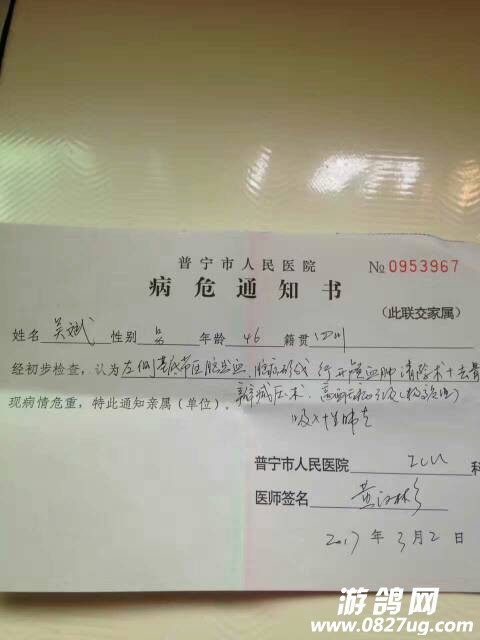 普宁市人民医院
№ 0953967
病危通知书
(此联交家属)
姓名 吴斌 性别 男 年龄 46 籍贯 四川
经初步检查,认为左侧基底节区脑出血.脑疝形成 行开颅血肿清除术+去骨
现病情危重,特此通知亲属(单位)。 瓣减压术. 高血压病3级(极高危)
吸入性肺炎
普宁市人民医院 ICU 科
医师签名
2017 年 3 月 2 日
游鸽网
www.0827ug.com